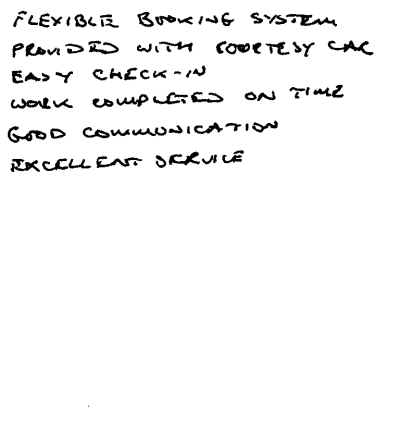 FLEXIBLE BOOKING SYSTEM
PROVIDED WITH COURTESY CAR
EASY CHECK-IN
WORK COMPLETED ON TIME
GOOD COMMUNICATION
EXCELLENT SERVICE